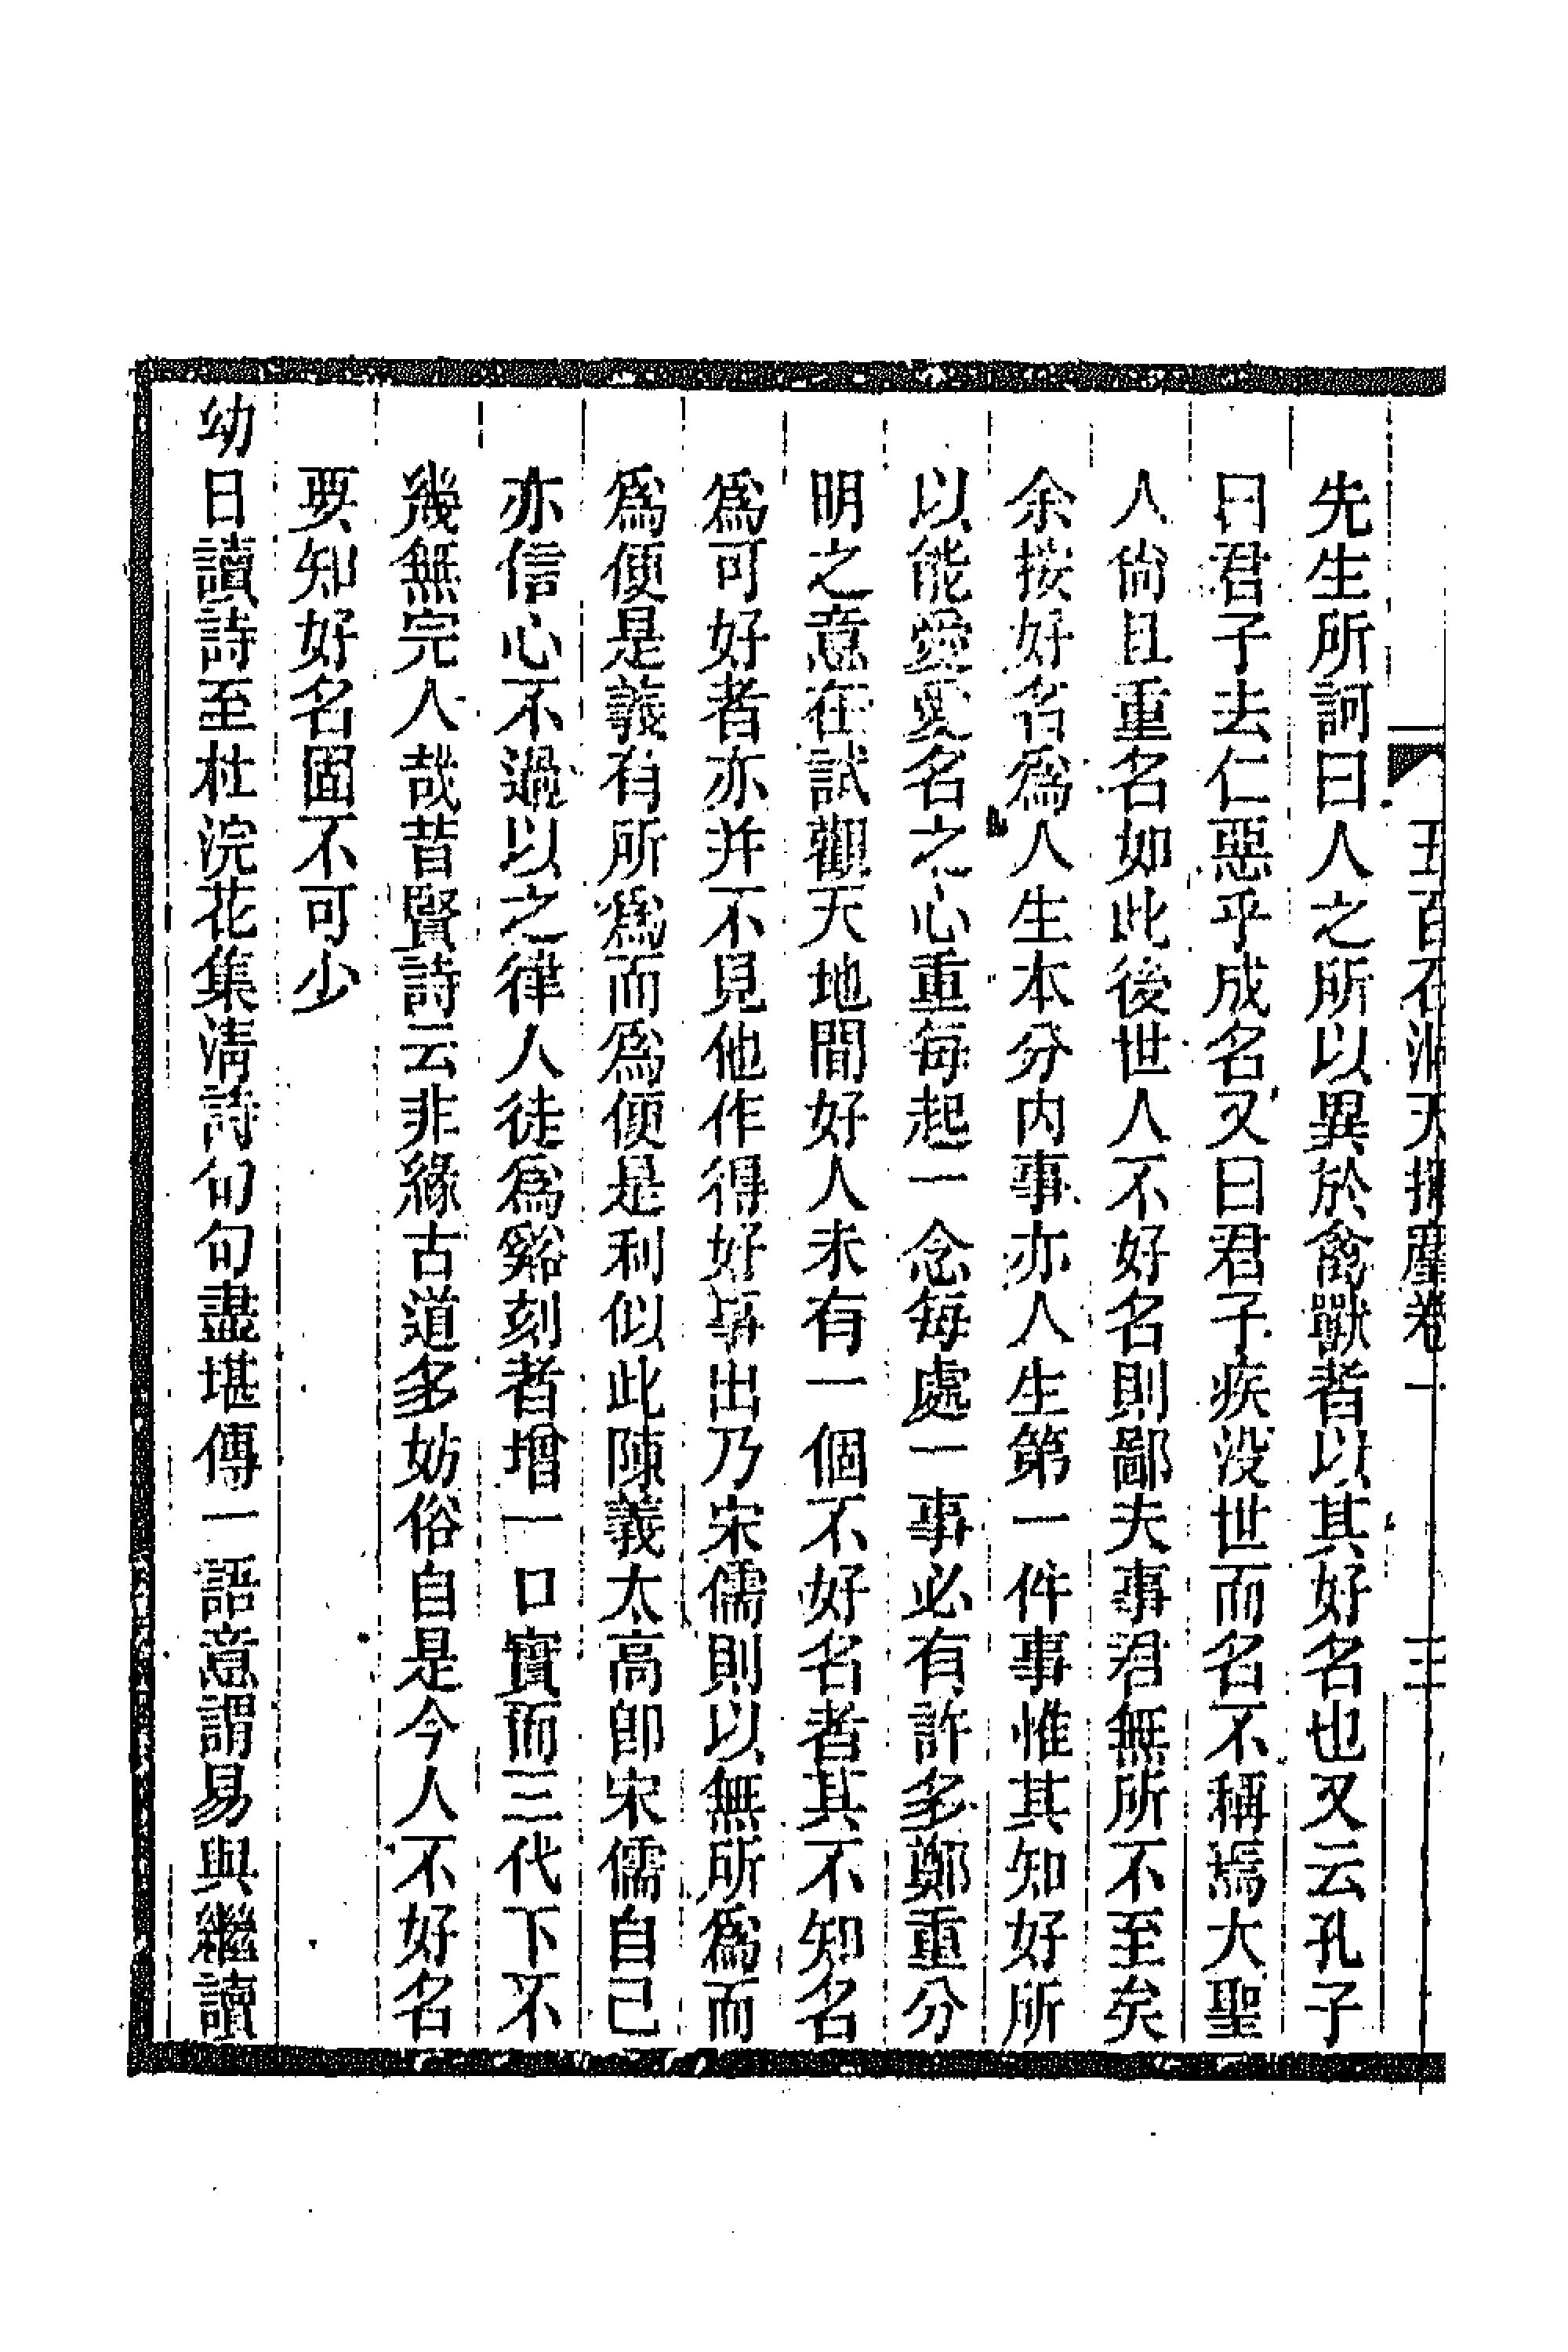 五百石洞天揮麈卷一 三
先生所訶曰人之所以異於禽獸者以其好名也又云孔子
曰君子去仁惡乎成名又曰君子疾没世而名不稱焉大聖
人尙且重名如此後世人不好名則鄙夫事君無所不至矣
余按好名爲人生本分内事亦人生第一件事惟其知好所
以能愛愛名之心重每起一念每處一事必有許多鄭重分
明之意在試觀天地間好人未有一個不好名者其不知名
爲可好者亦并不見他作得好事出乃宋儒則以無所爲而
爲便是義有所爲而爲便是利似此陳義太高卽宋儒自己
亦信心不過以之律人徒爲谿刻者增一口實而三代下不
幾無完人哉昔賢詩云非緣古道多妨俗自是今人不好名
要知好名固不可少
幼日讀詩至杜浣花集淸詩句句盡堪傳一語意謂易與繼讀